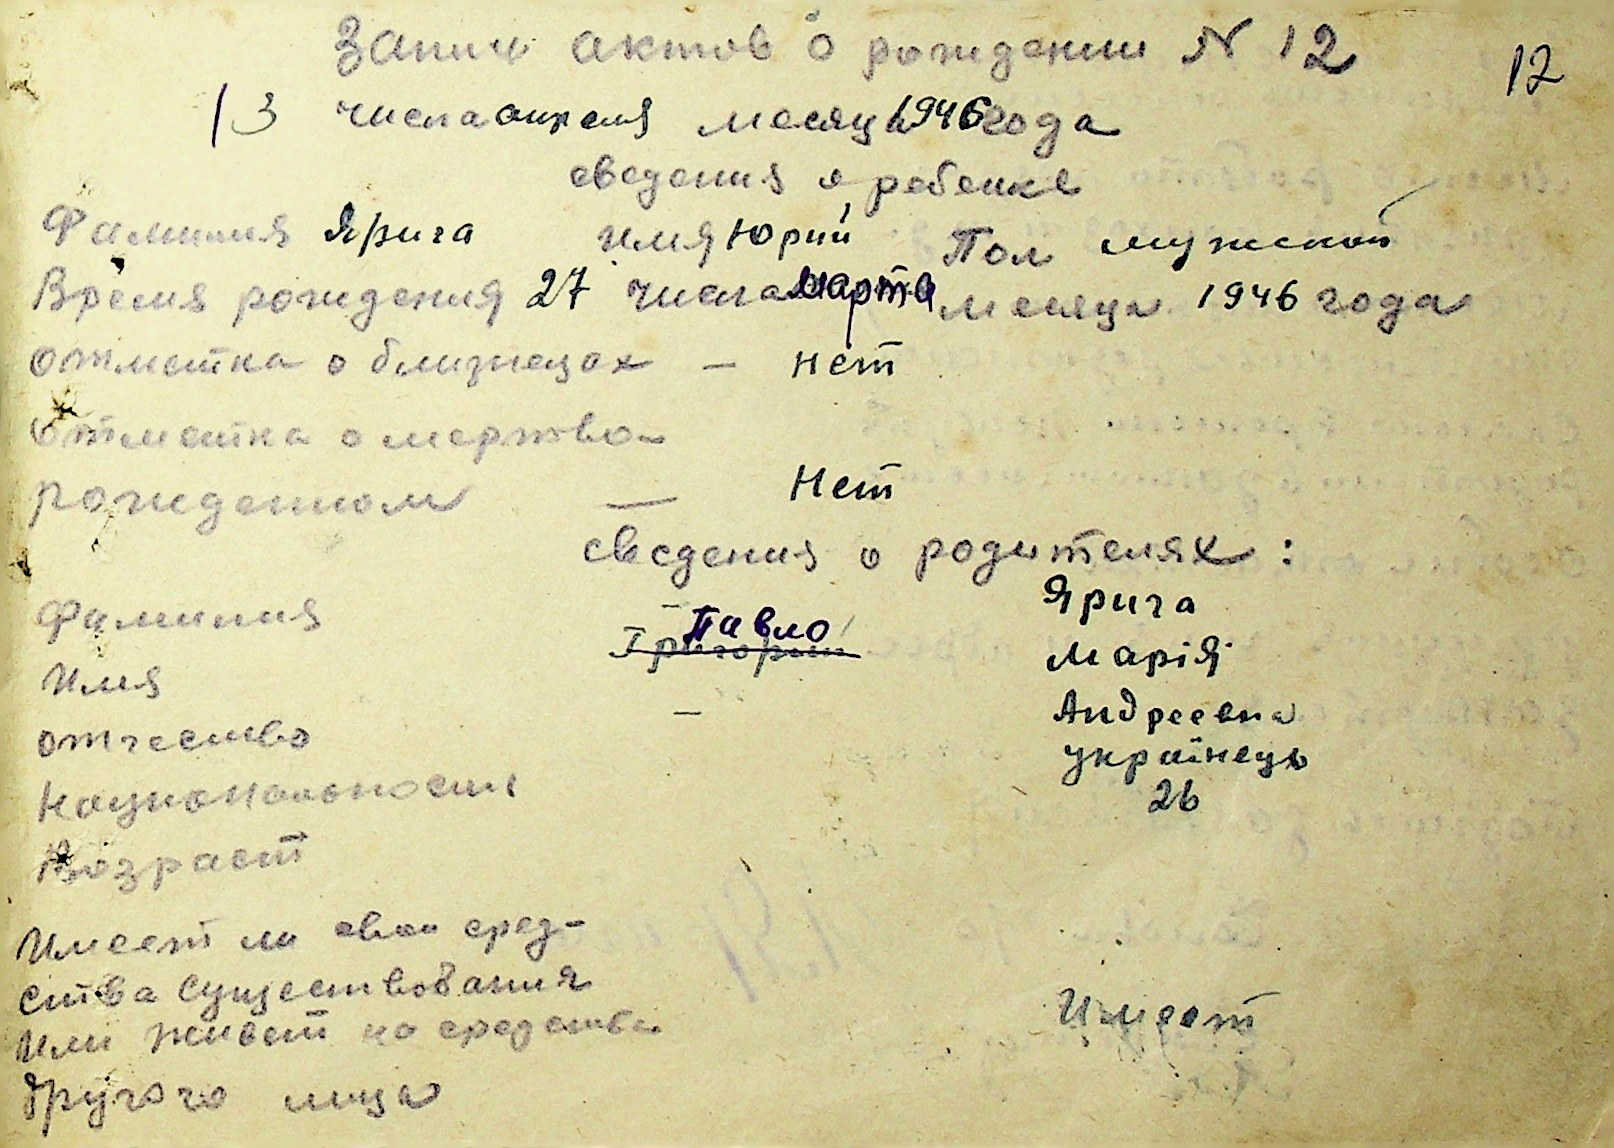 Запис актов о рождении N 12
12
13 числа апреля месяца 1946 года
сведения о ребенке
Фамилия Ярига имя Юрий Пол мужской
Время рождения 27 числа марта месяца 1946 года
отметка о близнецах — нет
отметка о мертво-
рожденном — Нет
сведения о родителях:
Фамилия — Ярига
Имя Григорий Павло Марія
отчество — Андреевна
Национальность українець
Возраст 26
Имеет ли свои сред-
ства существования
Или живет на средства Имеет
другого лица